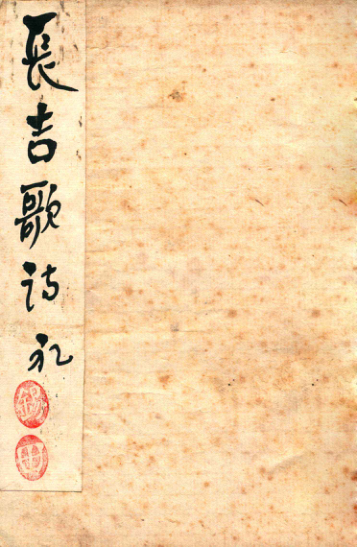 長吉歌詩